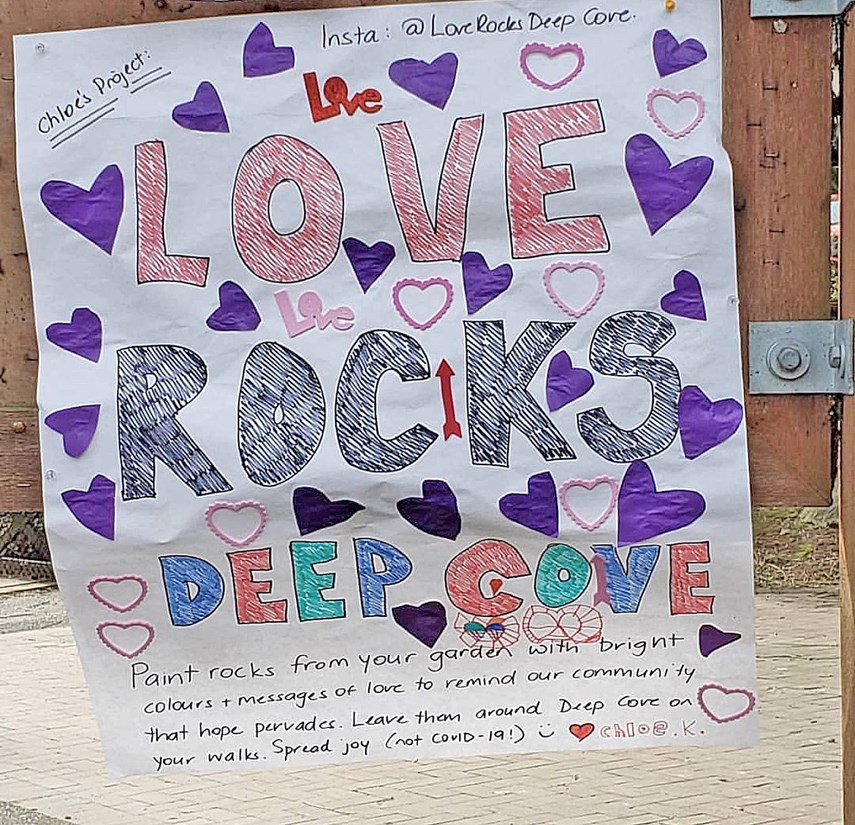 Insta: @LoveRocksDeep Cove.
Chloe's Project:
Love
LOVE
Love
ROCKS
DEEP COVE
Paint rocks from your garden with bright
colours + messages of love to remind our community
that hope pervades. Leave them around Deep Cove on
your walks. Spread joy (not COVID-19!) ☺ ♥ Chloe.K.